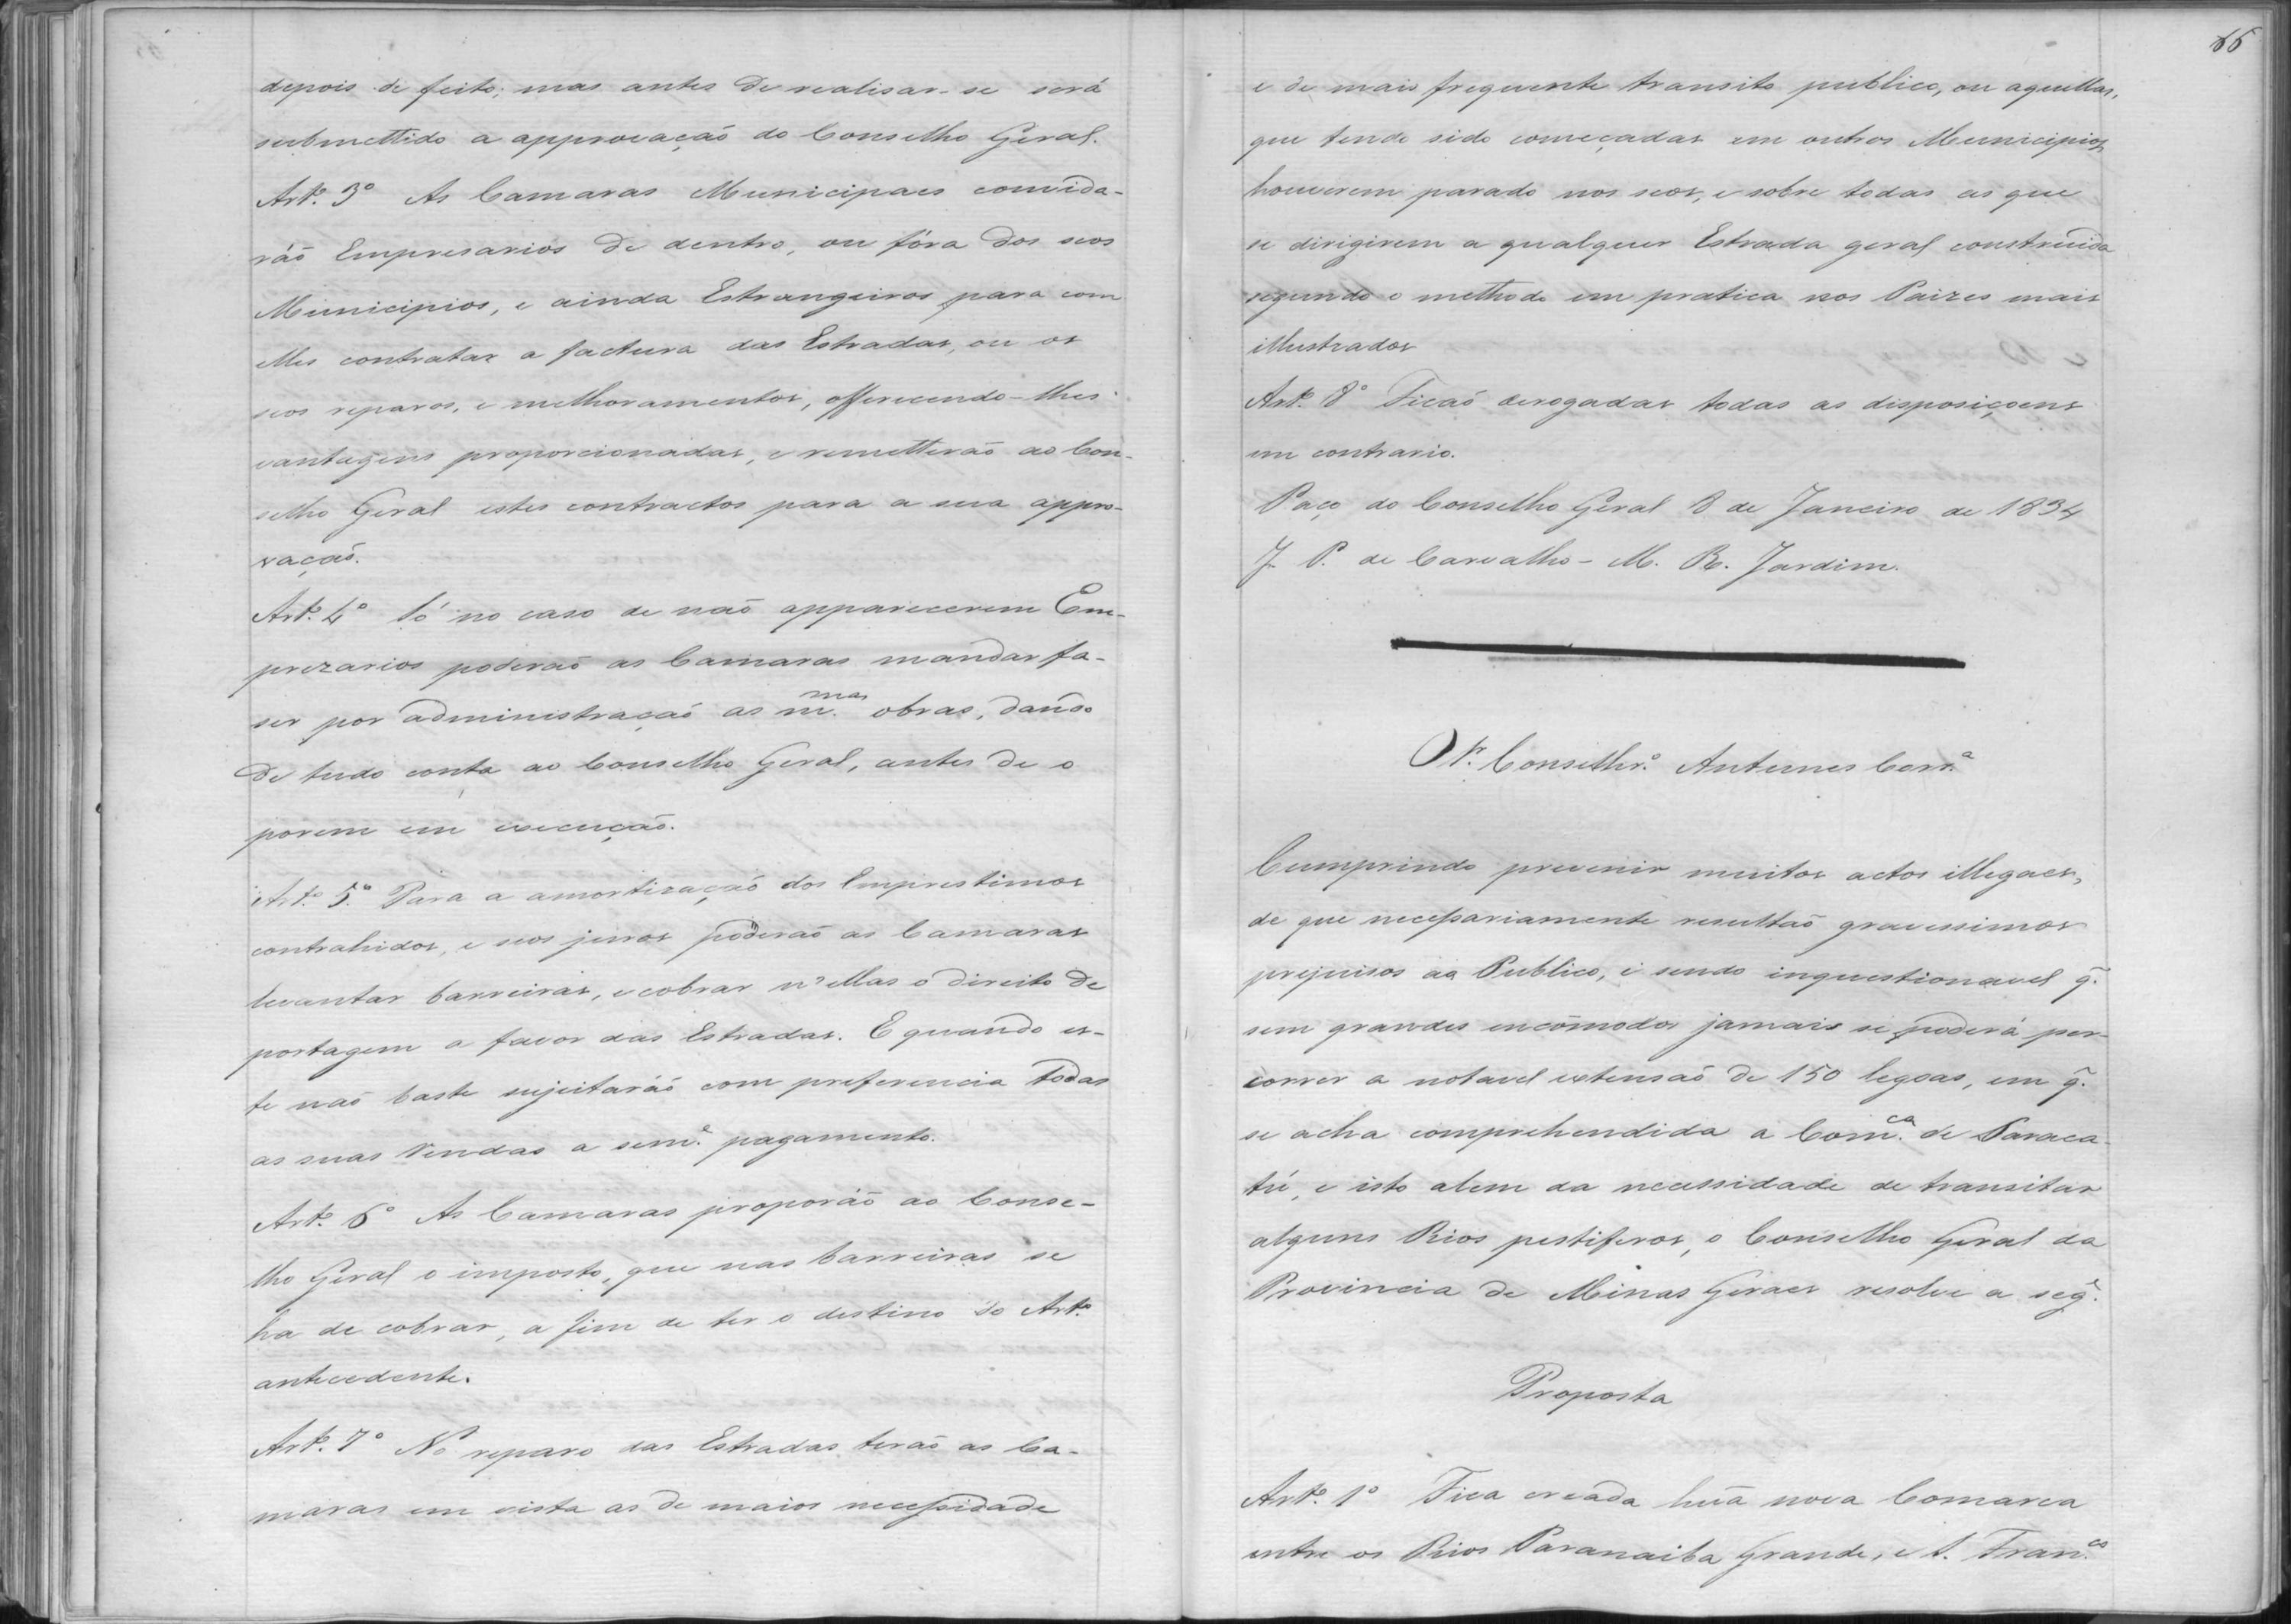 depois de feito; mas antes de realisar-se será
submettido a approvação do Conselho Geral.
Artº. 3º As Camaras Municipaes convida-
ráõ Empresarios de dentro, ou fóra dos seos
Municipios, e ainda Estrangeiros para com
elles contratar a factura das Estradas, ou os
seos reparos, e melhoramentos, offerecendo-lhes
vantagens proporcionadas, e remetteráõ ao Con-
selho Geral estes contractos para a sua appro-
vaçaõ.
Artº. 4º Só no caso de naõ apparecerem Em-
prezarios poderaõ as Camaras mandar fa-
ser por administraçaõ as m.mas obras, dando
de tudo conta ao Conselho Geral, antes de o
porem em execuçaõ.
Artº. 5º. Para a amortizaçaõ dos Emprestimos
contrahidos, e seos juros poderaõ as Camaras
levantar barreiras, e cobrar n'ellas o direito de
portagem a favor das Estradas. E quando es-
te naõ baste sujeitaráõ com preferencia todas
as suas rendas a semᵉ. pagamento.
Artº. 6º As Camaras proporáõ ao Conse-
lho Geral o imposto, que nas barreiras se
ha de cobrar, a fim de ter o destino do Artº.
antecedente.
Artº. 7º No reparo das Estradas teraõ as Ca-
maras em vista as de maior necessidade
66
e de mais frequente transito publico, ou aquellas,
que tendo sido começadas em outros Municipios,
houverem parado nos seos, e sobre todas as que
se dirigirem a qualquer Estrada geral construida
segundo o methodo em pratica nos Paizes mais
illustrados
Artº. 8º Ficaõ derogadas todas as disposiçoens
em contrario.
Paço do Conselho Geral 8 de Janeiro de 1834
J. P. de Carvalho - M. R. Jardim.
O Sr. Conselhrº. Antunes Corrª.
Cumprindo prevenir muitos actos illegaes,
de que necessariamente resultaõ gravissimos
prejuisos ao Publico, e sendo inquestionavel q̃.
sem grandes encõmodos jamais se poderá per-
correr a notavel extensaõ de 150 legoas, em q̃.
se acha comprehendida a Com.ca de Paraca-
tú, e isto alem da necessidade de transitar
alguns Rios pestiferos, o Conselho Geral da
Provincia de Minas Geraes resolve a segᵉ.
Proposta
Artº. 1º Fica creada huã nova Comarca
entre os Rios Paranaiba Grande, e S. Fran.co